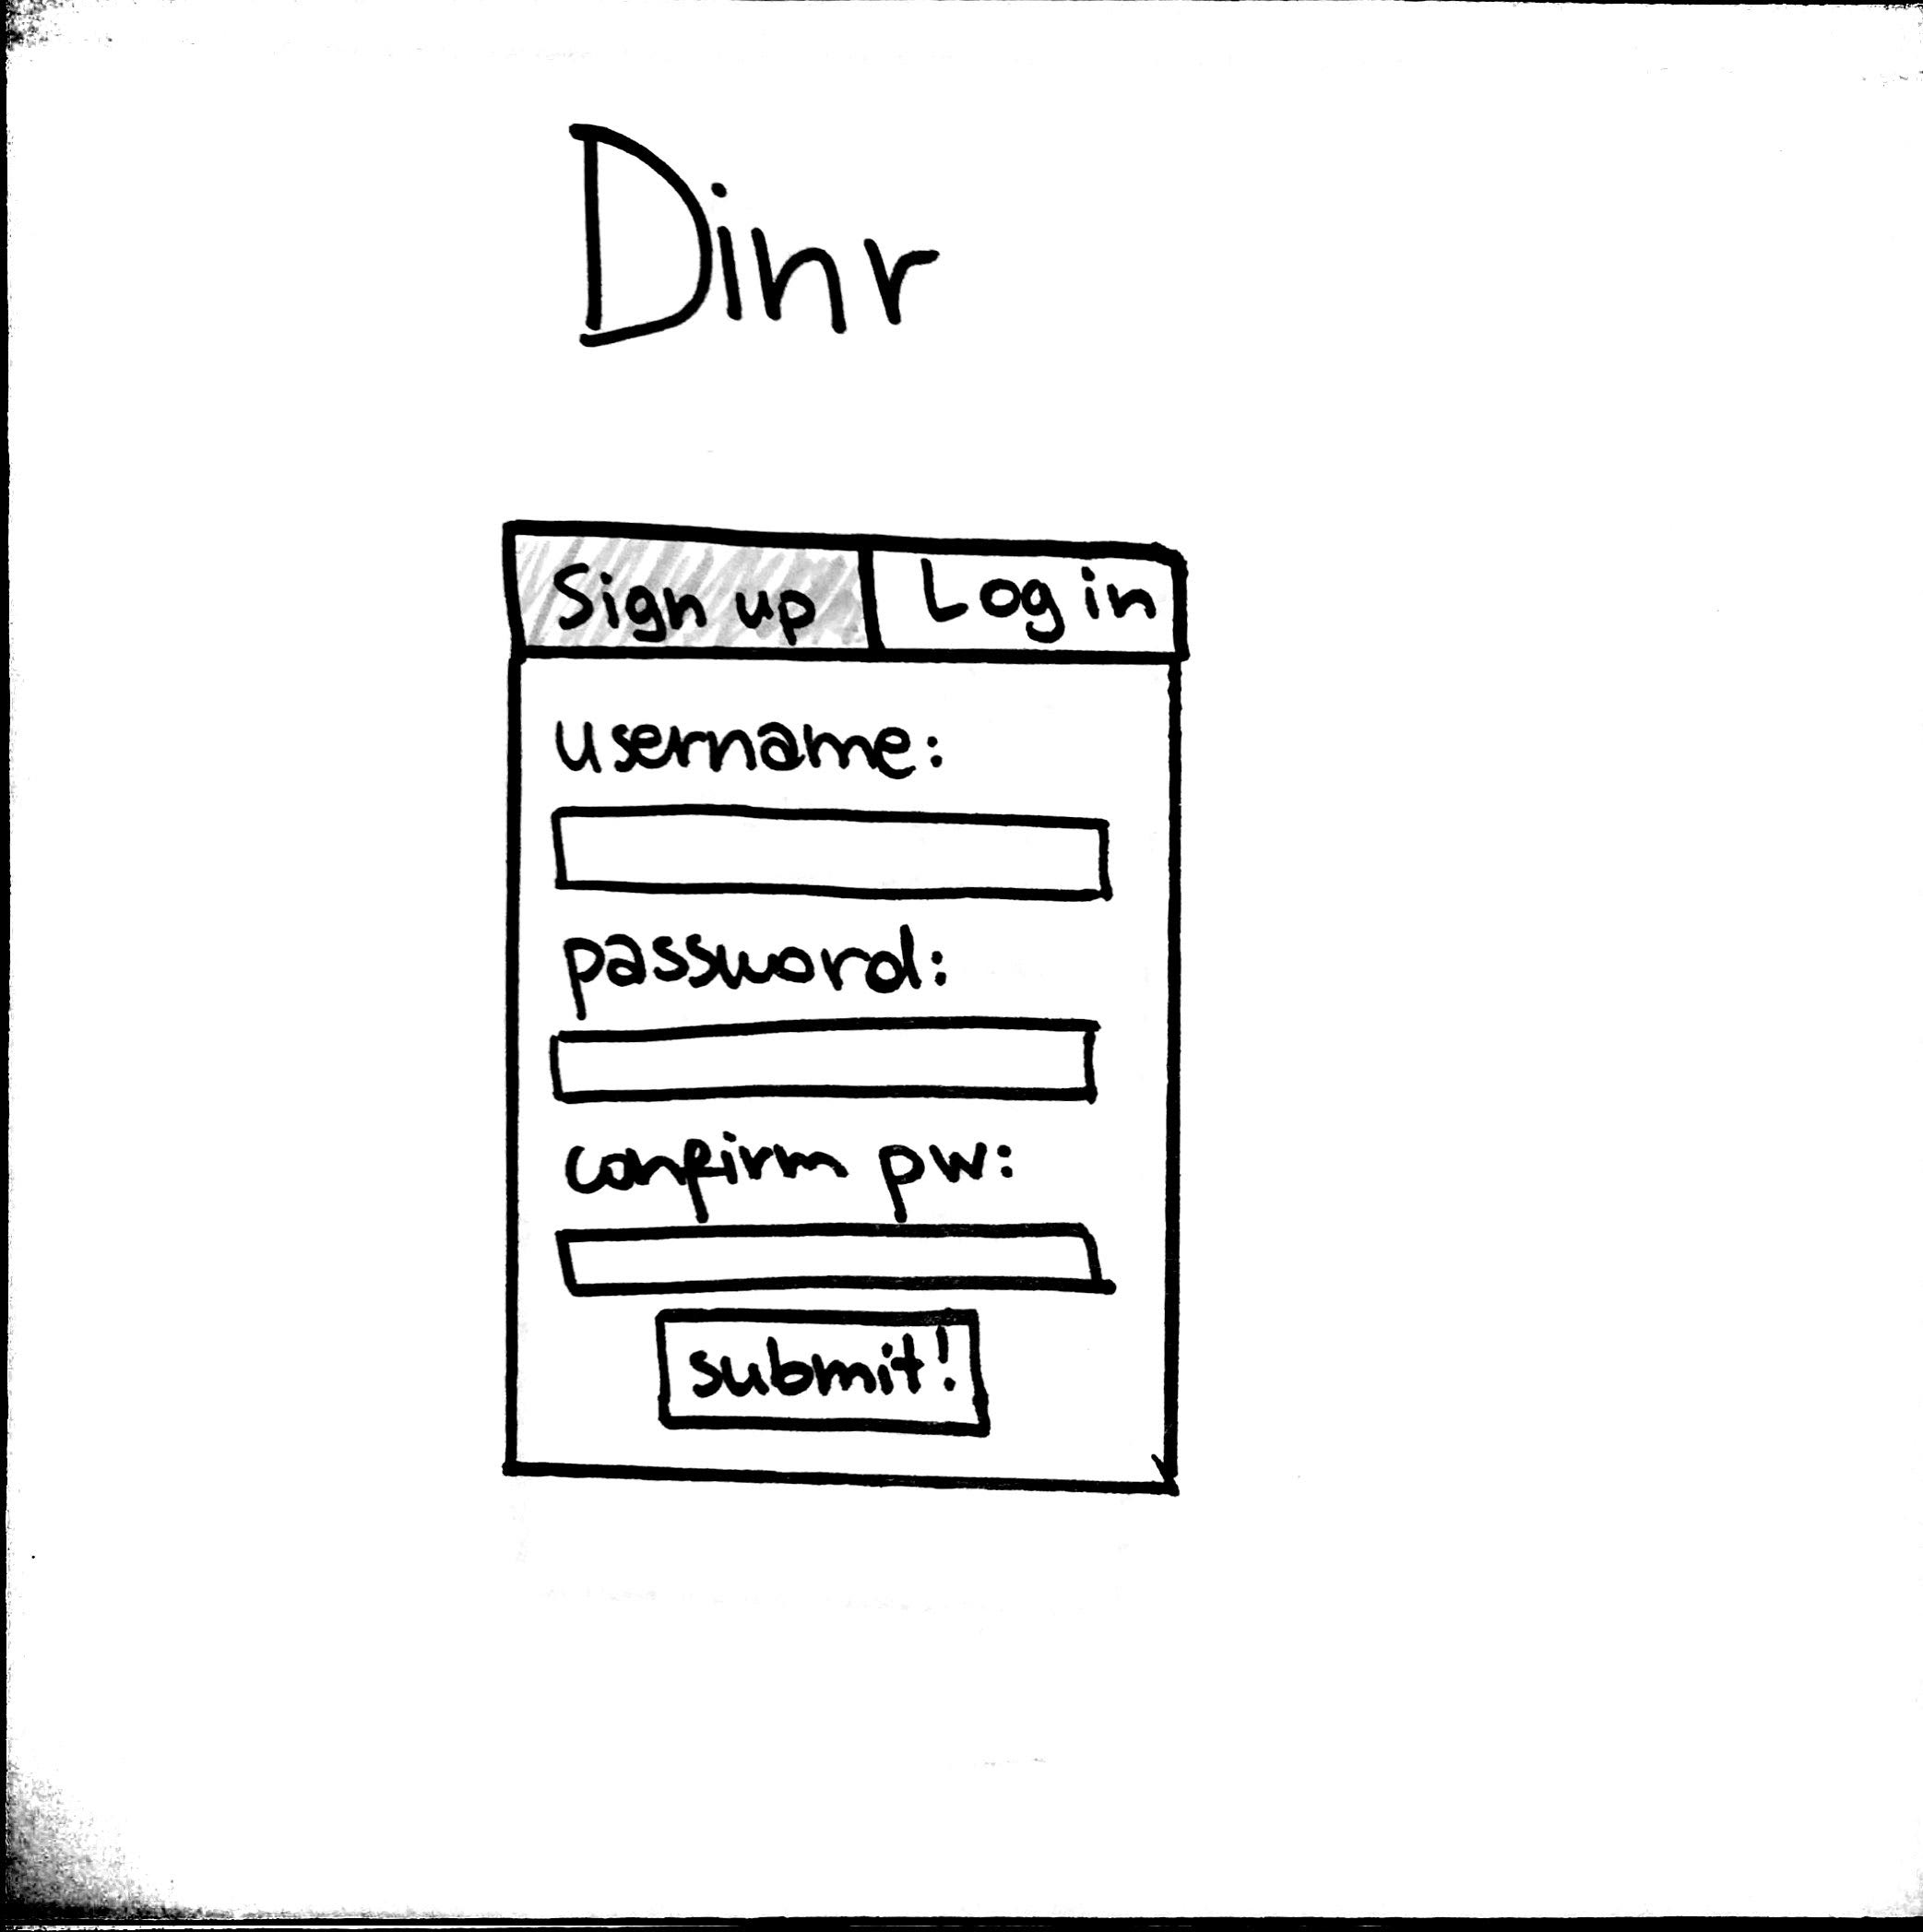 Dinr
Sign up Log in
username:
password:
confirm pw:
submit!